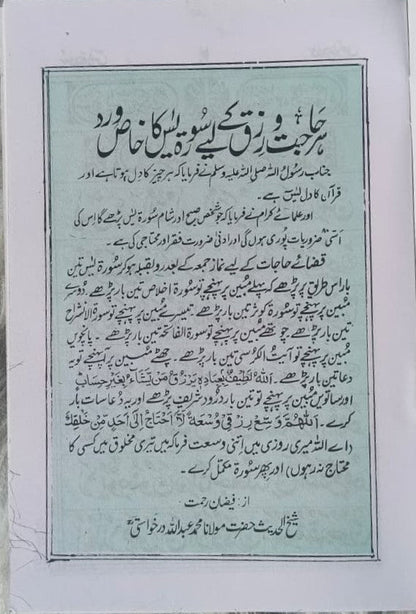 ہر حاجت و رزق کے لیے سُورۃ یٰسٓ کا خاص ورد
جناب رسُولُ اللہ صلی اللہ علیہ وسلم نے فرمایا کہ ہر چیز کا دل ہوتا ہے اور
قرآن کا دل یٰسٓ ہے۔
اور علمائے کرام نے فرمایا کہ جو شخص صبح اور شام سُورۃ یٰسٓ پڑھے گا اس کی
اَسّی ضروریات پُوری ہوں گی اور ادنیٰ ضرورت فقر اور محتاجی کی ہے۔
قضائے حاجات کے لیے نماز جمعہ کے بعد رو بقبلہ ہو کر سُورۃ یٰسٓ تین
بار اس طریق پر پڑھے کہ پہلے مُبین پر پہنچے تو سُورۃ اخلاص تین بار پڑھے۔ دُوسرے
مُبین پر پہنچے تو سُورۃ کوثر تین بار پڑھے۔ تیسرے مُبین پر پہنچے تو سُورۃ الانشراح
تین بار پڑھے۔ چوتھے مُبین پر پہنچے تو سورۃ الفاتحہ تین بار پڑھے۔ پانچویں
مُبین پر پہنچے تو آیتُ الکُرسی تین بار پڑھے۔ چھٹے مُبین پر پہنچے تو یہ
دعا تین بار پڑھے۔ اَللّٰہُ لَطِیْفٌ بِعِبَادِہٖ یَرْزُقُ مَنْ یَّشَآءُ بِغَیْرِ حِسَابٍ
اور ساتویں مُبین پر پہنچے تو تین بار درُود شریف پڑھے اور یہ دُعا سات بار
کرے۔ اَللّٰھُمَّ وَسِّعْ رِزْقِیْ وُسْعَۃً لَّا اَحْتَاجُ اِلٰی اَحَدٍ مِّنْ خَلْقِکَ
(اے اللہ میری روزی میں اِتنی وسعت فرما کہ میں تیری مخلوق میں کسی کا
محتاج نہ رہوں) اور پھر سُورۃ مکمّل کرے۔
از: فیضان رحمت
شیخُ الحدیث حضرت مولانا محمد عبداللہ درخواستیؒ